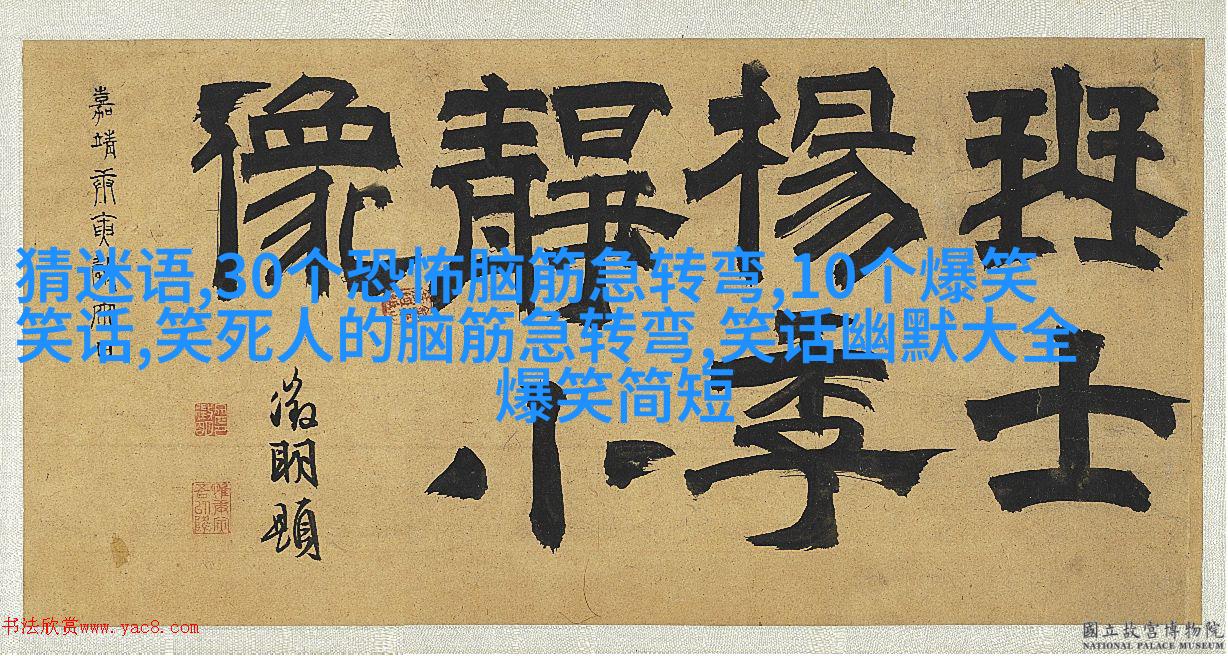 琴士
楊季
靜小
像
嘉靖庚寅
徵明題
猜迷语,30个恐怖脑筋急转弯,10个爆笑
笑话,笑死人的脑筋急转弯,笑话幽默大全
爆笑简短
书法欣赏www.yac8.com
國立故宮博物院
NATIONAL PALACE MUSEUM